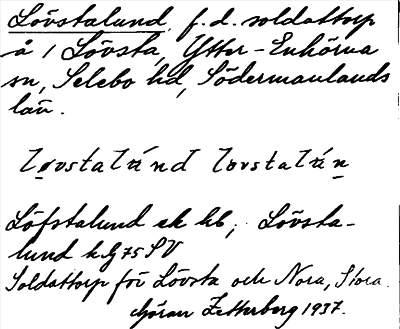 Lövstalund, f.d. soldattorp
å 1 Lövsta, Ytter-Enhörna
sn, Selebo hd, Södermanlands
län.
Löfstalund ek kb; Lövsta-
lund kG 75 SV
Soldattorp för Lövsta och Nora, Stora.
Göran Zetterberg 1937.